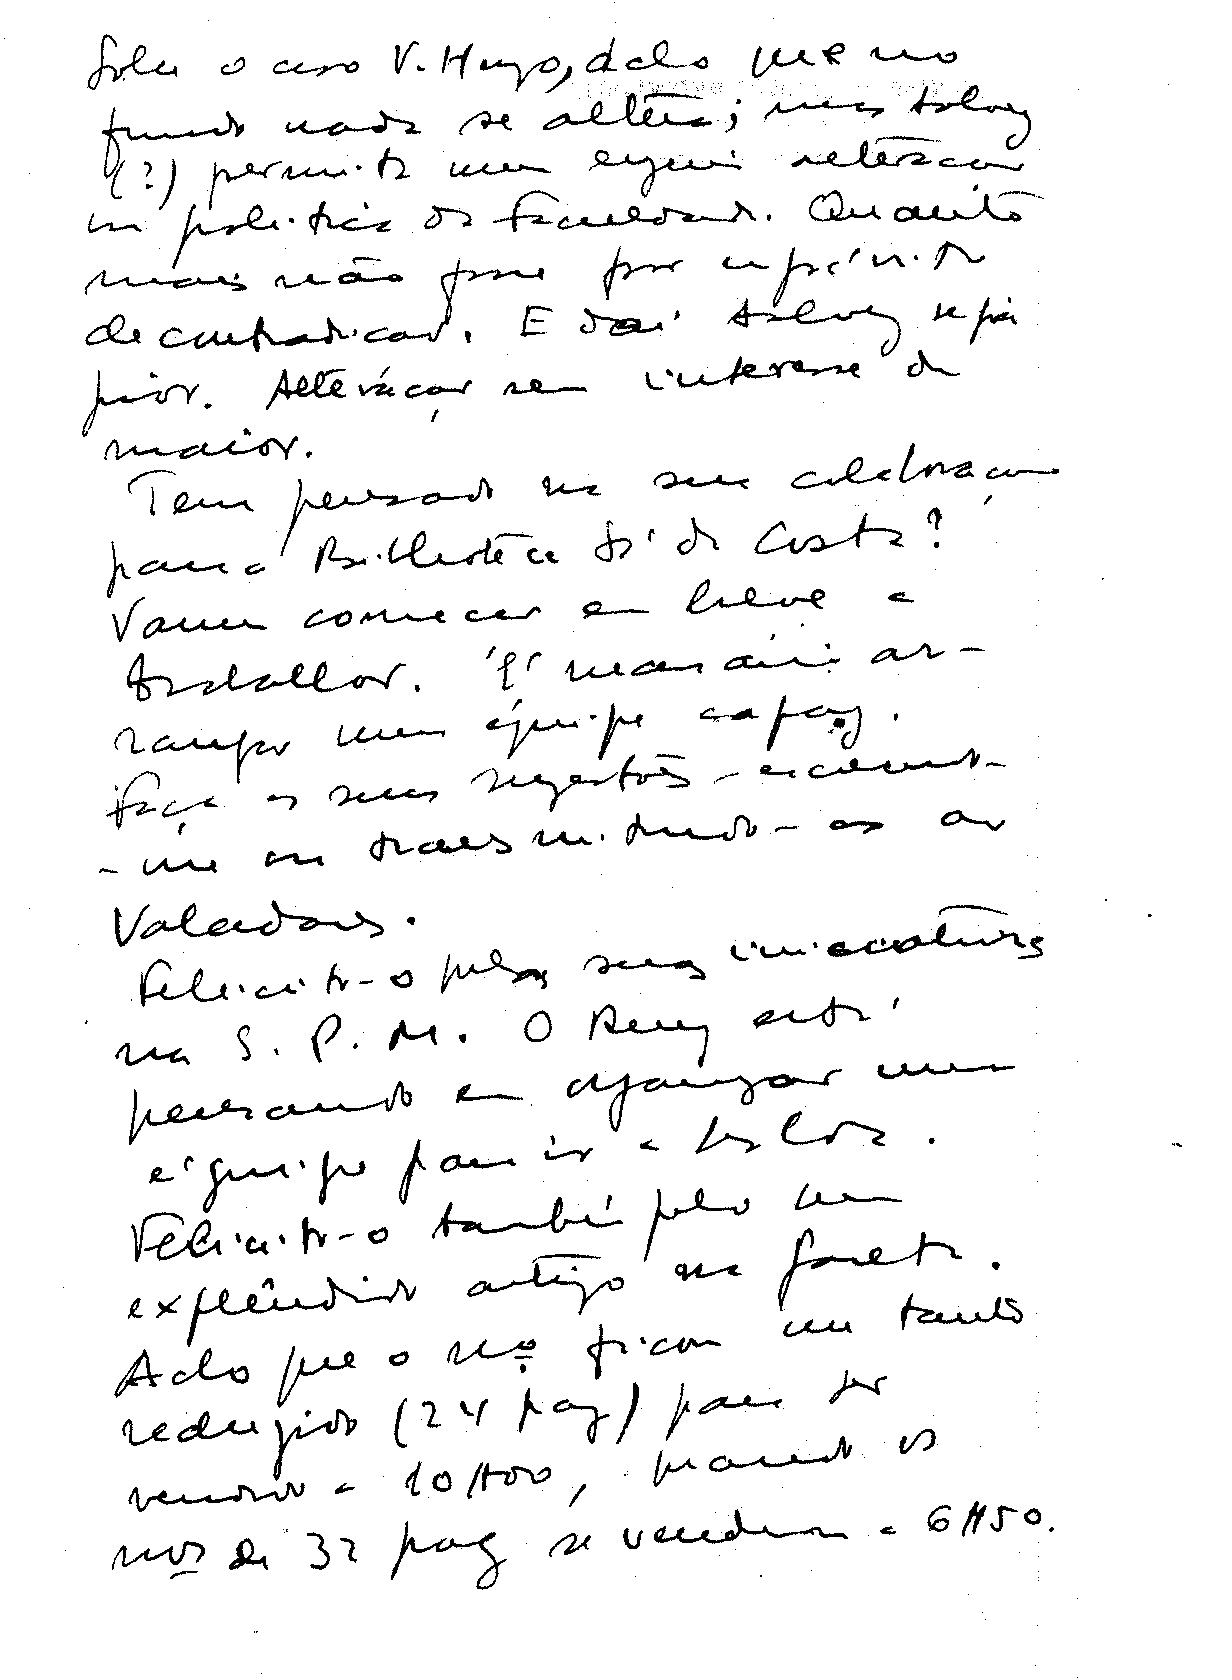 Sobre o caso V. Hugo, acho que no
fundo nada se altera; mas talvez
(?) permita uma alteração
na política da Faculdade. Quanto
mais não fosse por espírito
de contradição. E daí talvez seja
pior. Alteração sem interesse de
maior.
Tem pensado na sua colaboração
para a Biblioteca Sá da Costa?
Vamos começar em breve a
trabalhar. É necessário ar-
ranjar uma équipe capaz.
Faça as suas sugestões - escrevendo-
-me ou transmitindo-as ao
Valadares.
Felicito-o pelas suas iniciativas
na S. P. M. O Ruy está
pensando em organizar uma
équipe para ir a Lisboa.
Felicito-o também pelo seu
explêndido artigo na Gazeta.
Acho que o nº ficou um tanto
reduzido (24 pag) para ser
vendido a 10$00, quando os
nos de 32 pag se vendiam a 6$50.